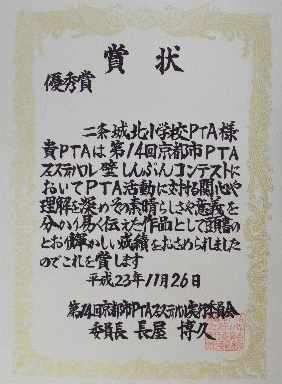 賞状
優秀賞
二条城北小学校PTA様
貴PTAは第14回京都市PTA
フェスティバル壁しんぶんコンテストに
おいてPTA活動に対する関心や
理解を深めその素晴らしさや意義を
分かり易く伝えた作品として頭書の
とおり輝かしい成績をおさめられました
のでこれを賞します
平成23年11月26日
第14回京都市PTAフェスティバル実行委員会
委員長 長屋 博久